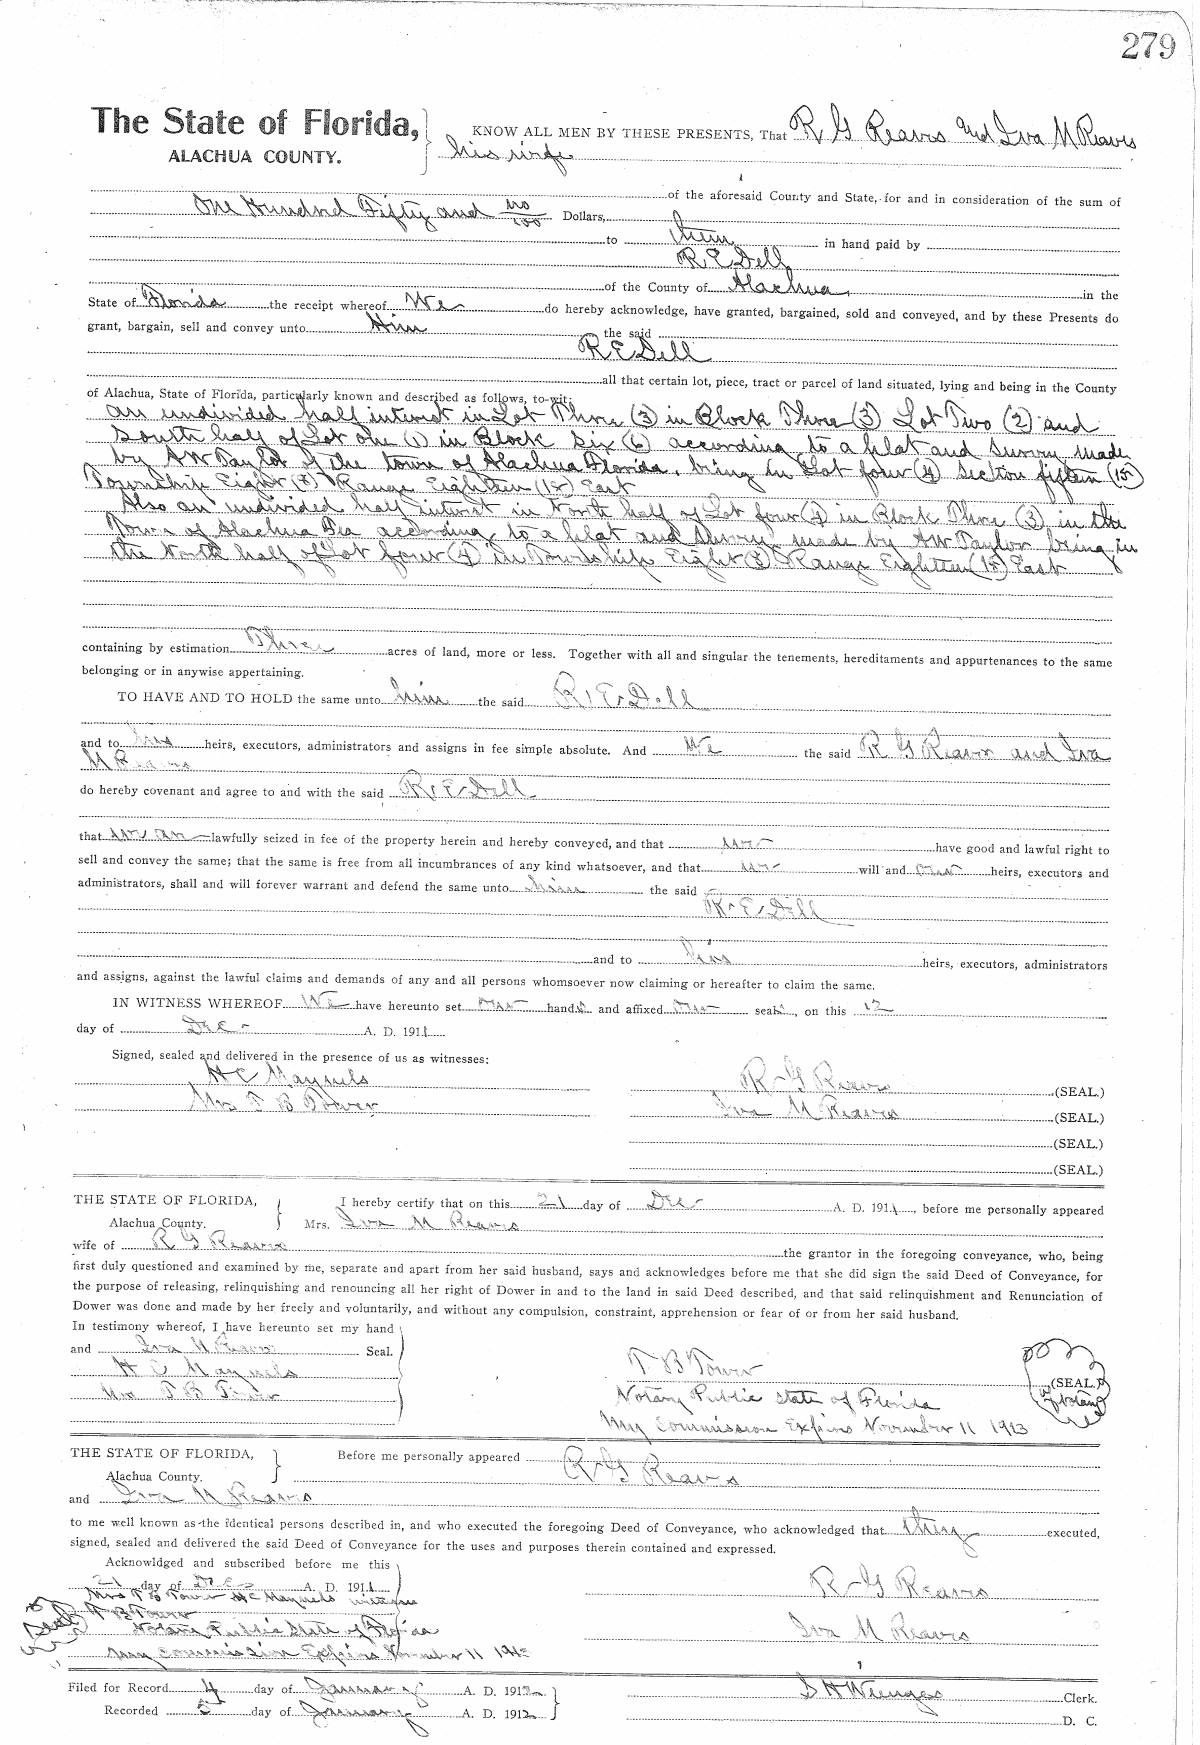 279
The State of Florida,
ALACHUA COUNTY.
KNOW ALL MEN BY THESE PRESENTS, That R G Reaves and Iva M Reaves
his wife
of the aforesaid County and State, for and in consideration of the sum of
One Hundred Fifty and no/100 Dollars,
to them in hand paid by
R E Dell
of the County of Alachua in the
State of Florida the receipt whereof We do hereby acknowledge, have granted, bargained, sold and conveyed, and by these Presents do
grant, bargain, sell and convey unto Him the said
R E Dell
all that certain lot, piece, tract or parcel of land situated, lying and being in the County
of Alachua, State of Florida, particularly known and described as follows, to-wit:
An undivided half interest in Lot Three (3) in Block Three (3) Lot Two (2) and
South half of Lot One (1) in Block Six (6) according to a plat and Survey made
by AW Taylor of the town of Alachua Florida, being in Lot four (4) Section fifteen (15)
Township Eight (8) Range Eighteen (18) East
Also an undivided half interest in North half of Lot four (4) in Block Three (3) in the
Town of Alachua Fla according to a plat and Survey made by AW Taylor being in
the North half of Lot four (4) in Township Eight (8) Range Eighteen (18) East
containing by estimation Three acres of land, more or less. Together with all and singular the tenements, hereditaments and appurtenances to the same
belonging or in anywise appertaining.
TO HAVE AND TO HOLD the same unto him the said R. E. Dell
and to his heirs, executors, administrators and assigns in fee simple absolute. And We the said R G Reaves and Iva
M Reaves
do hereby covenant and agree to and with the said R. E. Dell
that we are lawfully seized in fee of the property herein and hereby conveyed, and that we have good and lawful right to
sell and convey the same; that the same is free from all incumbrances of any kind whatsoever, and that we will and our heirs, executors and
administrators, shall and will forever warrant and defend the same unto him the said
R. E. Dell
and to his heirs, executors, administrators
and assigns, against the lawful claims and demands of any and all persons whomsoever now claiming or hereafter to claim the same.
IN WITNESS WHEREOF We have hereunto set our hands and affixed our seals, on this 12
day of Dec A. D. 1911
Signed, sealed and delivered in the presence of us as witnesses:
H C R G Reaves (SEAL.)
Mrs T B Tower Iva M Reaves (SEAL.)
(SEAL.)
(SEAL.)
THE STATE OF FLORIDA,
Alachua County.
I hereby certify that on this 21 day of Dec A. D. 1911, before me personally appeared
Mrs. Iva M Reaves
wife of R G Reaves the grantor in the foregoing conveyance, who, being
first duly questioned and examined by me, separate and apart from her said husband, says and acknowledges before me that she did sign the said Deed of Conveyance, for
the purpose of releasing, relinquishing and renouncing all her right of Dower in and to the land in said Deed described, and that said relinquishment and Renunciation of
Dower was done and made by her freely and voluntarily, and without any compulsion, constraint, apprehension or fear of or from her said husband.
In testimony whereof, I have hereunto set my hand
and Iva M Reaves Seal.
H C
Mrs T B Tower
T B Tower (SEAL.)
Notary Public State of Florida
My Commission Expires November 11 1913
THE STATE OF FLORIDA,
Alachua County.
Before me personally appeared R G Reaves
and Iva M Reaves
to me well known as the identical persons described in, and who executed the foregoing Deed of Conveyance, who acknowledged that they executed,
signed, sealed and delivered the said Deed of Conveyance for the uses and purposes therein contained and expressed.
Acknowldged and subscribed before me this
21 day of Dec A. D. 1911
Mrs T B Tower H C witnesses
T B Tower
Notary Public State of Florida
My Commission Expires November 11 1913
Seal
R G Reaves
Iva M Reaves
Filed for Record 4 day of January A. D. 1912
Recorded 5 day of January A. D. 1912
S H Wienges Clerk.
D. C.